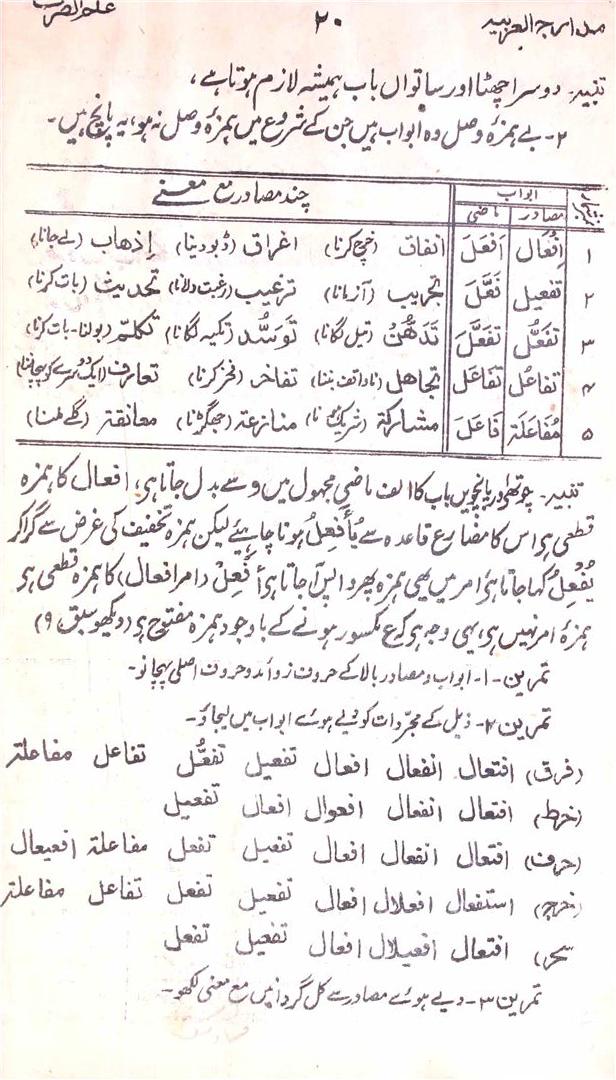 مدارج العربیہ ۲۰ علم الصرف
تنبیہ۔ دوسرا چھٹا اور ساتواں باب ہمیشہ لازم ہوتا ہے،
۲۔ بے ہمزۂ وصل وہ ابواب ہیں جن کے شروع میں ہمزۂ وصل نہ ہو، یہ پانچ ہیں۔
نمبر شمار ابواب چند مصادر مع معنے
مصادر ماضی
۱ اِفْعَال اَفْعَلَ انفاق (خرچ کرنا) اغراق (ڈبو دینا) اِذھاب (لے جانا)
۲ تفعیل فَعَّلَ تجریب (آزمانا) ترغیب (رغبت دلانا) تحدیث (بات کرنا)
۳ تفَعُّل تفَعَّلَ تَدَھُّنْ (تیل لگانا) تَوَسُّد (تکیہ لگانا) تکلّم (بولنا۔ بات کرنا)
۴ تفاعُل تفَاعَل تجاھل (ناواقف بننا) تفاخر (فخر کرنا) تعارف (ایک دوسرے کو پہچاننا)
۵ مُفَاعَلَة فَاعَلَ مشارکة (شریک کرنا) منازعة (جھگڑنا) معانقة (گلے ملنا)
تنبیہ۔ چوتھے اور پانچویں باب کا الف ماضی مجہول میں و سے بدل جاتا ہی، افعال کا ہمزہ
قطعی ہی اس کا مضارع قاعدہ سے یُأَفْعِلُ ہونا چاہیئے لیکن ہمزہ تخفیف کی غرض سے گرا کر
یُفْعِلُ کہا جاتا ہی امر میں یہی ہمزہ پھر واپس آ جاتا ہی أَفْعِلْ (امر افعال) کا ہمزہ قطعی ہی
ہمزۂ امر نہیں ہی، یہی وجہ ہی کہ ع مکسور ہونے کے باوجود ہمزہ مفتوح ہی (دیکھو سبق ۹)
تمرین۔ ۱۔ ابواب و مصادر بالا کے حروف زوائد و حروف اصلی پہچانو۔
تمرین ۲۔ ذیل کے مجردات کو دیے ہوئے ابواب میں لیجاؤ۔
(فرق) افتعال انفعال افعال تفعیل تفعُّل تفاعل مفاعلة
(خرط) افتعال انفعال افعوال افعال تفعیل
(حرف) افتعال انفعال افعال تفعیل تفعل مفاعلة افعیعال
(خرج) استفعال افعلال افعال تفعیل تفعل تفاعل مفاعلة
سحر) افتعال افعیلال افعال تفعیل تفعل
تمرین ۳۔ دیے ہوئے مصادر سے کل گردانیں مع معنی لکھو۔